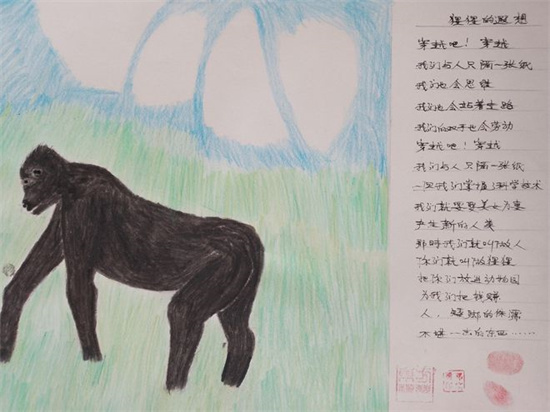 猩猩的遐想
穿越吧！穿越
我们与人只隔一张纸
我们也会思维
我们也会站着走路
我们的双手也会劳动
穿越吧！穿越
我们与人只隔一张纸
一旦我们掌握了科学技术
我们就要娶美女为妻
产生新的人类
那时我们就叫做人
你们就叫做猩猩
把你们放进动物园
为我们把钱赚
人，矮脚的
不堪一击的东西……